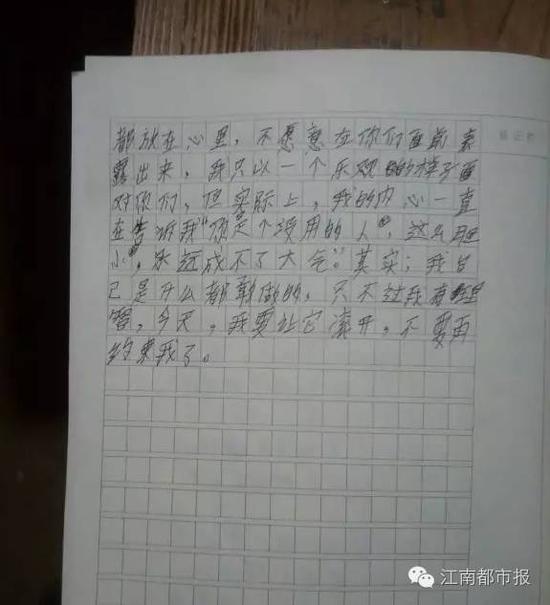 都放在心里，不愿意在你们面前表
露出来，我只以一个乐观的样子面
对你们，但实际上，我的内心一直
在告诉我“你是个没用的人”，这么胆
小，永远成不了大气。”其实；我自
己是什么都敢做的，只不过我有
智，今天，我要让它滚开，不要再
约束我了。
江南都市报